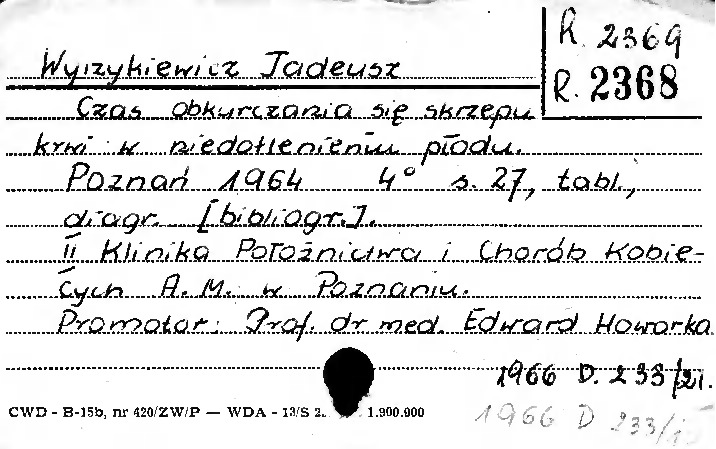 R. 2369
R. 2368
Wyrzykiewicz Tadeusz
Czas obkurczania się skrzepu
krwi w niedotlenieniu płodu.
Poznań 1964 4° s. 27, tabl.,
diagr. [bibliogr.].
II Klinika Położnictwa i Chorób Kobie-
cych A. M. w Poznaniu.
Promotor: Prof. dr med. Edward Howorka
1966 D. 233/21.
1966 D 233/
CWD - B-15b, nr 420/ZW/P — WDA - 13/S 2. 1.900.900